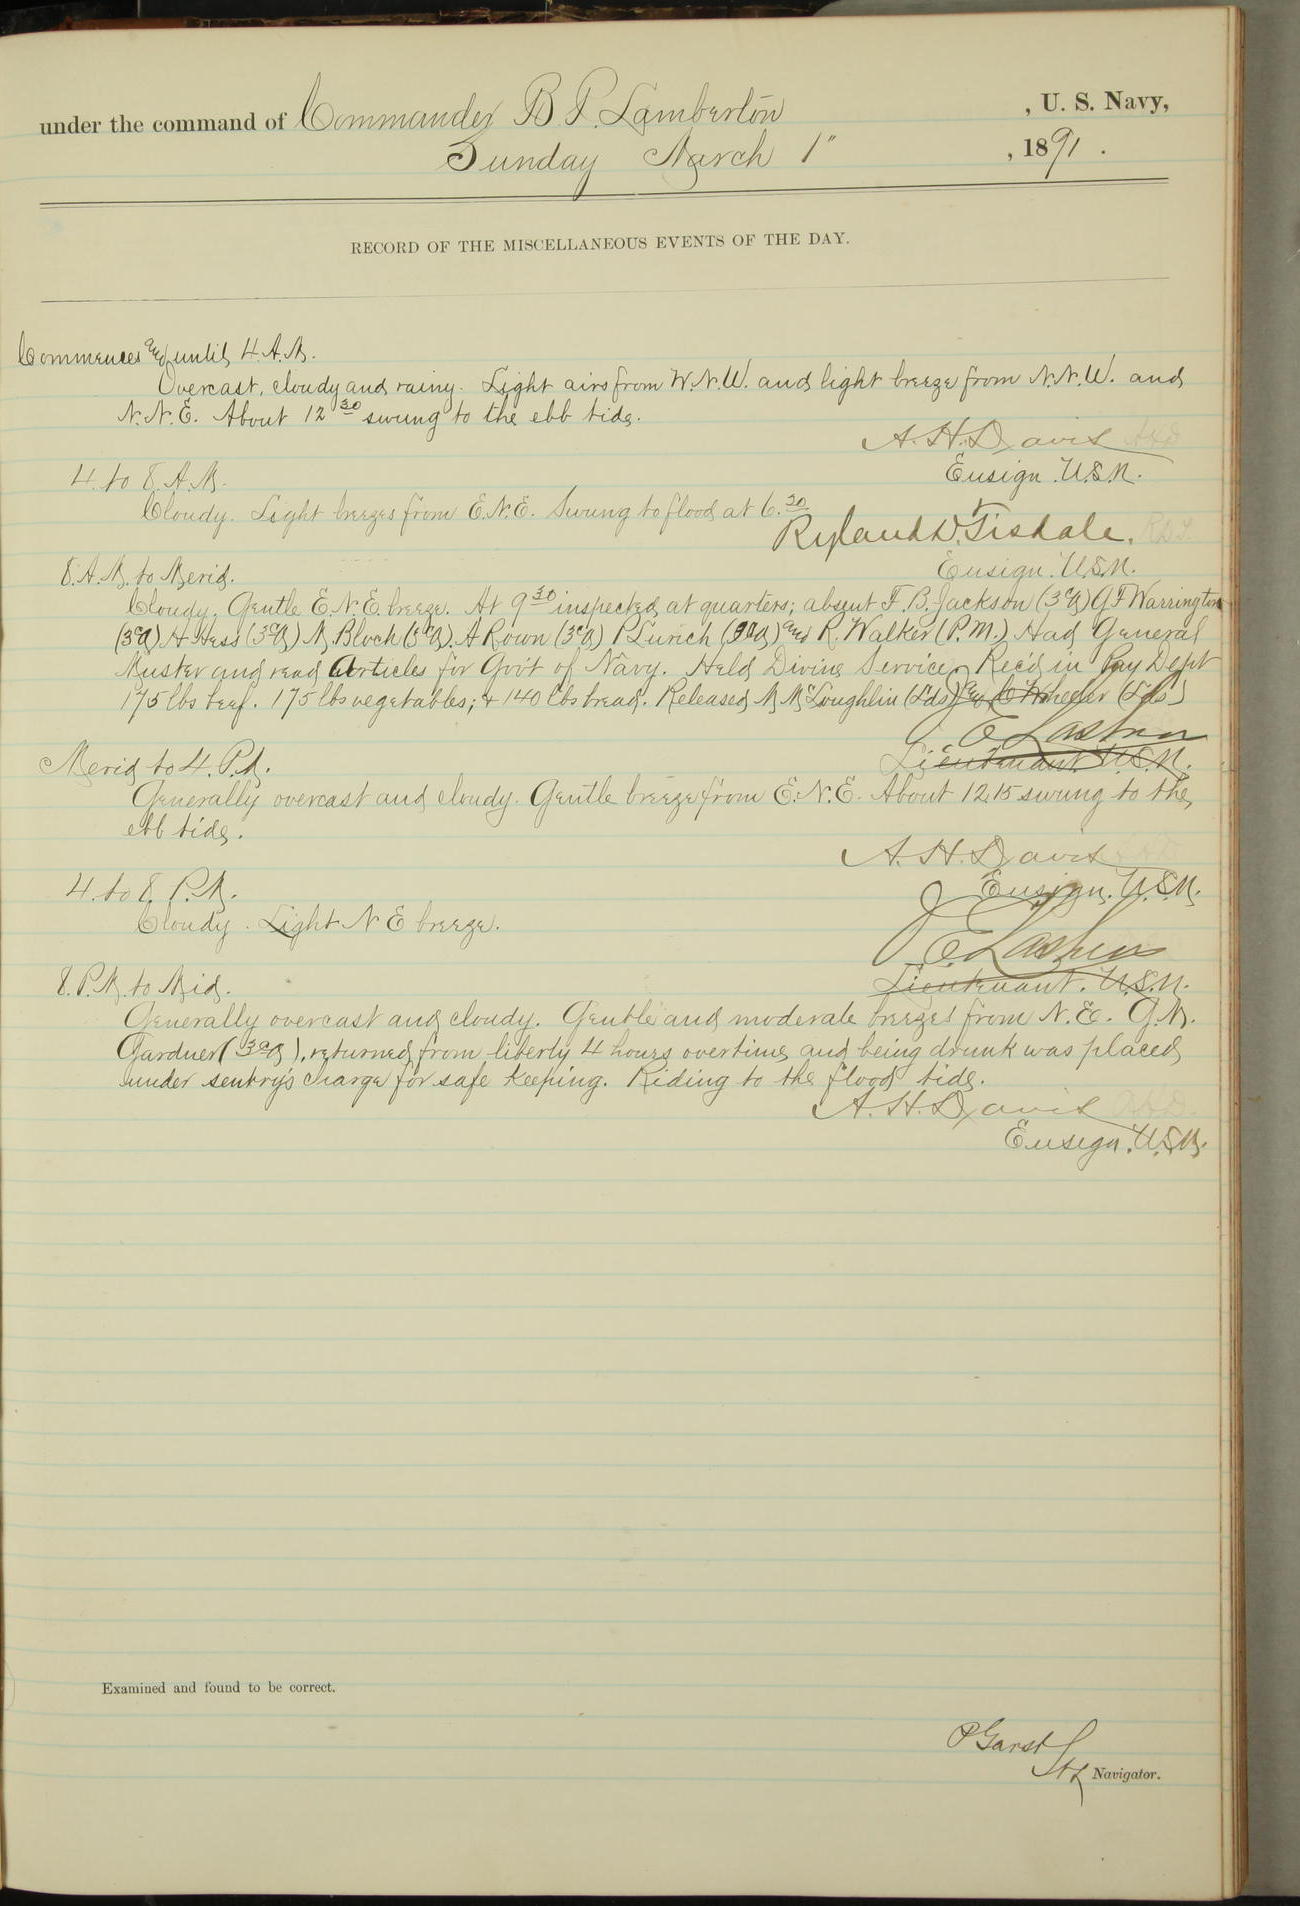 under the command of Commander B. P. Lamberton , U. S. Navy,
Sunday March 1" , 1891 .
RECORD OF THE MISCELLANEOUS EVENTS OF THE DAY.
Commences and until 4 A.M.
Overcast, cloudy and rainy. Light airs from W.N.W. and light breeze from N.N.W. and
N.N.E. About 12 30 swung to the ebb tide.
A. H. Davis AHD
Ensign U.S.N.
4 to 8 A.M.
Cloudy. Light breezes from E.N.E. Swung to flood at 6.30
Ryland D. Tisdale. RDT.
Ensign. U.S.N.
8. A.M. to Merid.
Cloudy. Gentle E.N.E. breeze. At 9 30 inspected at quarters; absent F. B. Jackson (3cd) G F Warrington
(3cd) H Hess (3cd) M. Bloch (3cd). A Rown (3cd) P Lurich and R. Walker (P.M.) Had General
Muster and read Articles for Gov't of Navy. Held Divine Service. Rec'd in Pay Dept
175 lbs beef. 175 lbs vegetables; & 140 lbs bread. Released M McLoughlin (Lds) and C Wheeler (Lds)
Lieutenant U.S.N.
Merid to 4. P.M.
Generally overcast and cloudy. Gentle breeze from E.N.E. About 12.15 swung to the
ebb tide.
A. H. Davis
Ensign. U.S.N.
4. to 8. P.M.
Cloudy. Light N E breeze.
Lieutenant. U.S.N.
8. P.M. to Mid.
Generally overcast and cloudy. Gentle and moderate breezes from N.E. G. M.
Gardner (3cd), returned from liberty 4 hours overtime and being drunk was placed
under sentry's charge for safe keeping. Riding to the flood tide.
A. H. Davis AHD.
Ensign. U.S.N.
Examined and found to be correct.
P Garst
Lt Navigator.